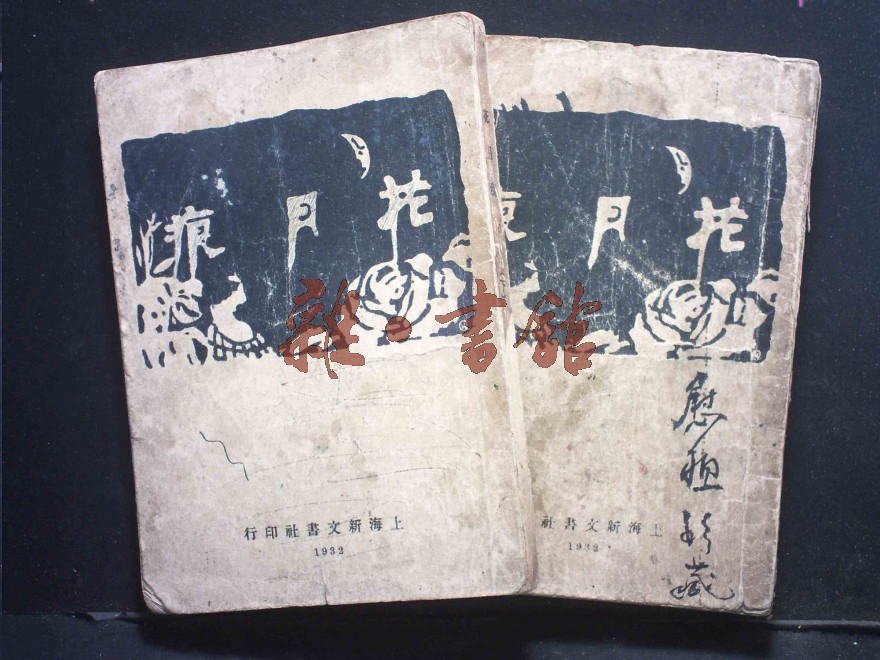 花月痕
上海新文書社印行
1932
花月痕
上海新文書社
1932
慰
藏
雜·書館